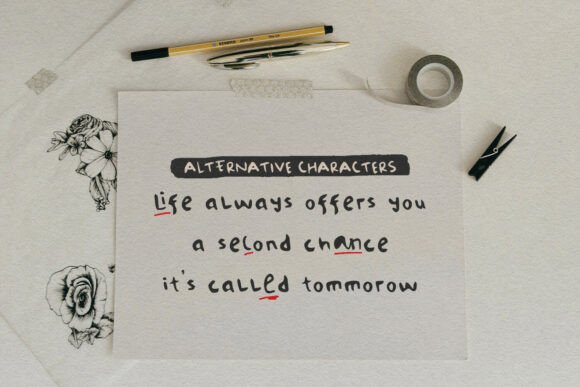 ALTERNATIVE CHARACTERS
Life always offers you
a second chance
it's called tommorow